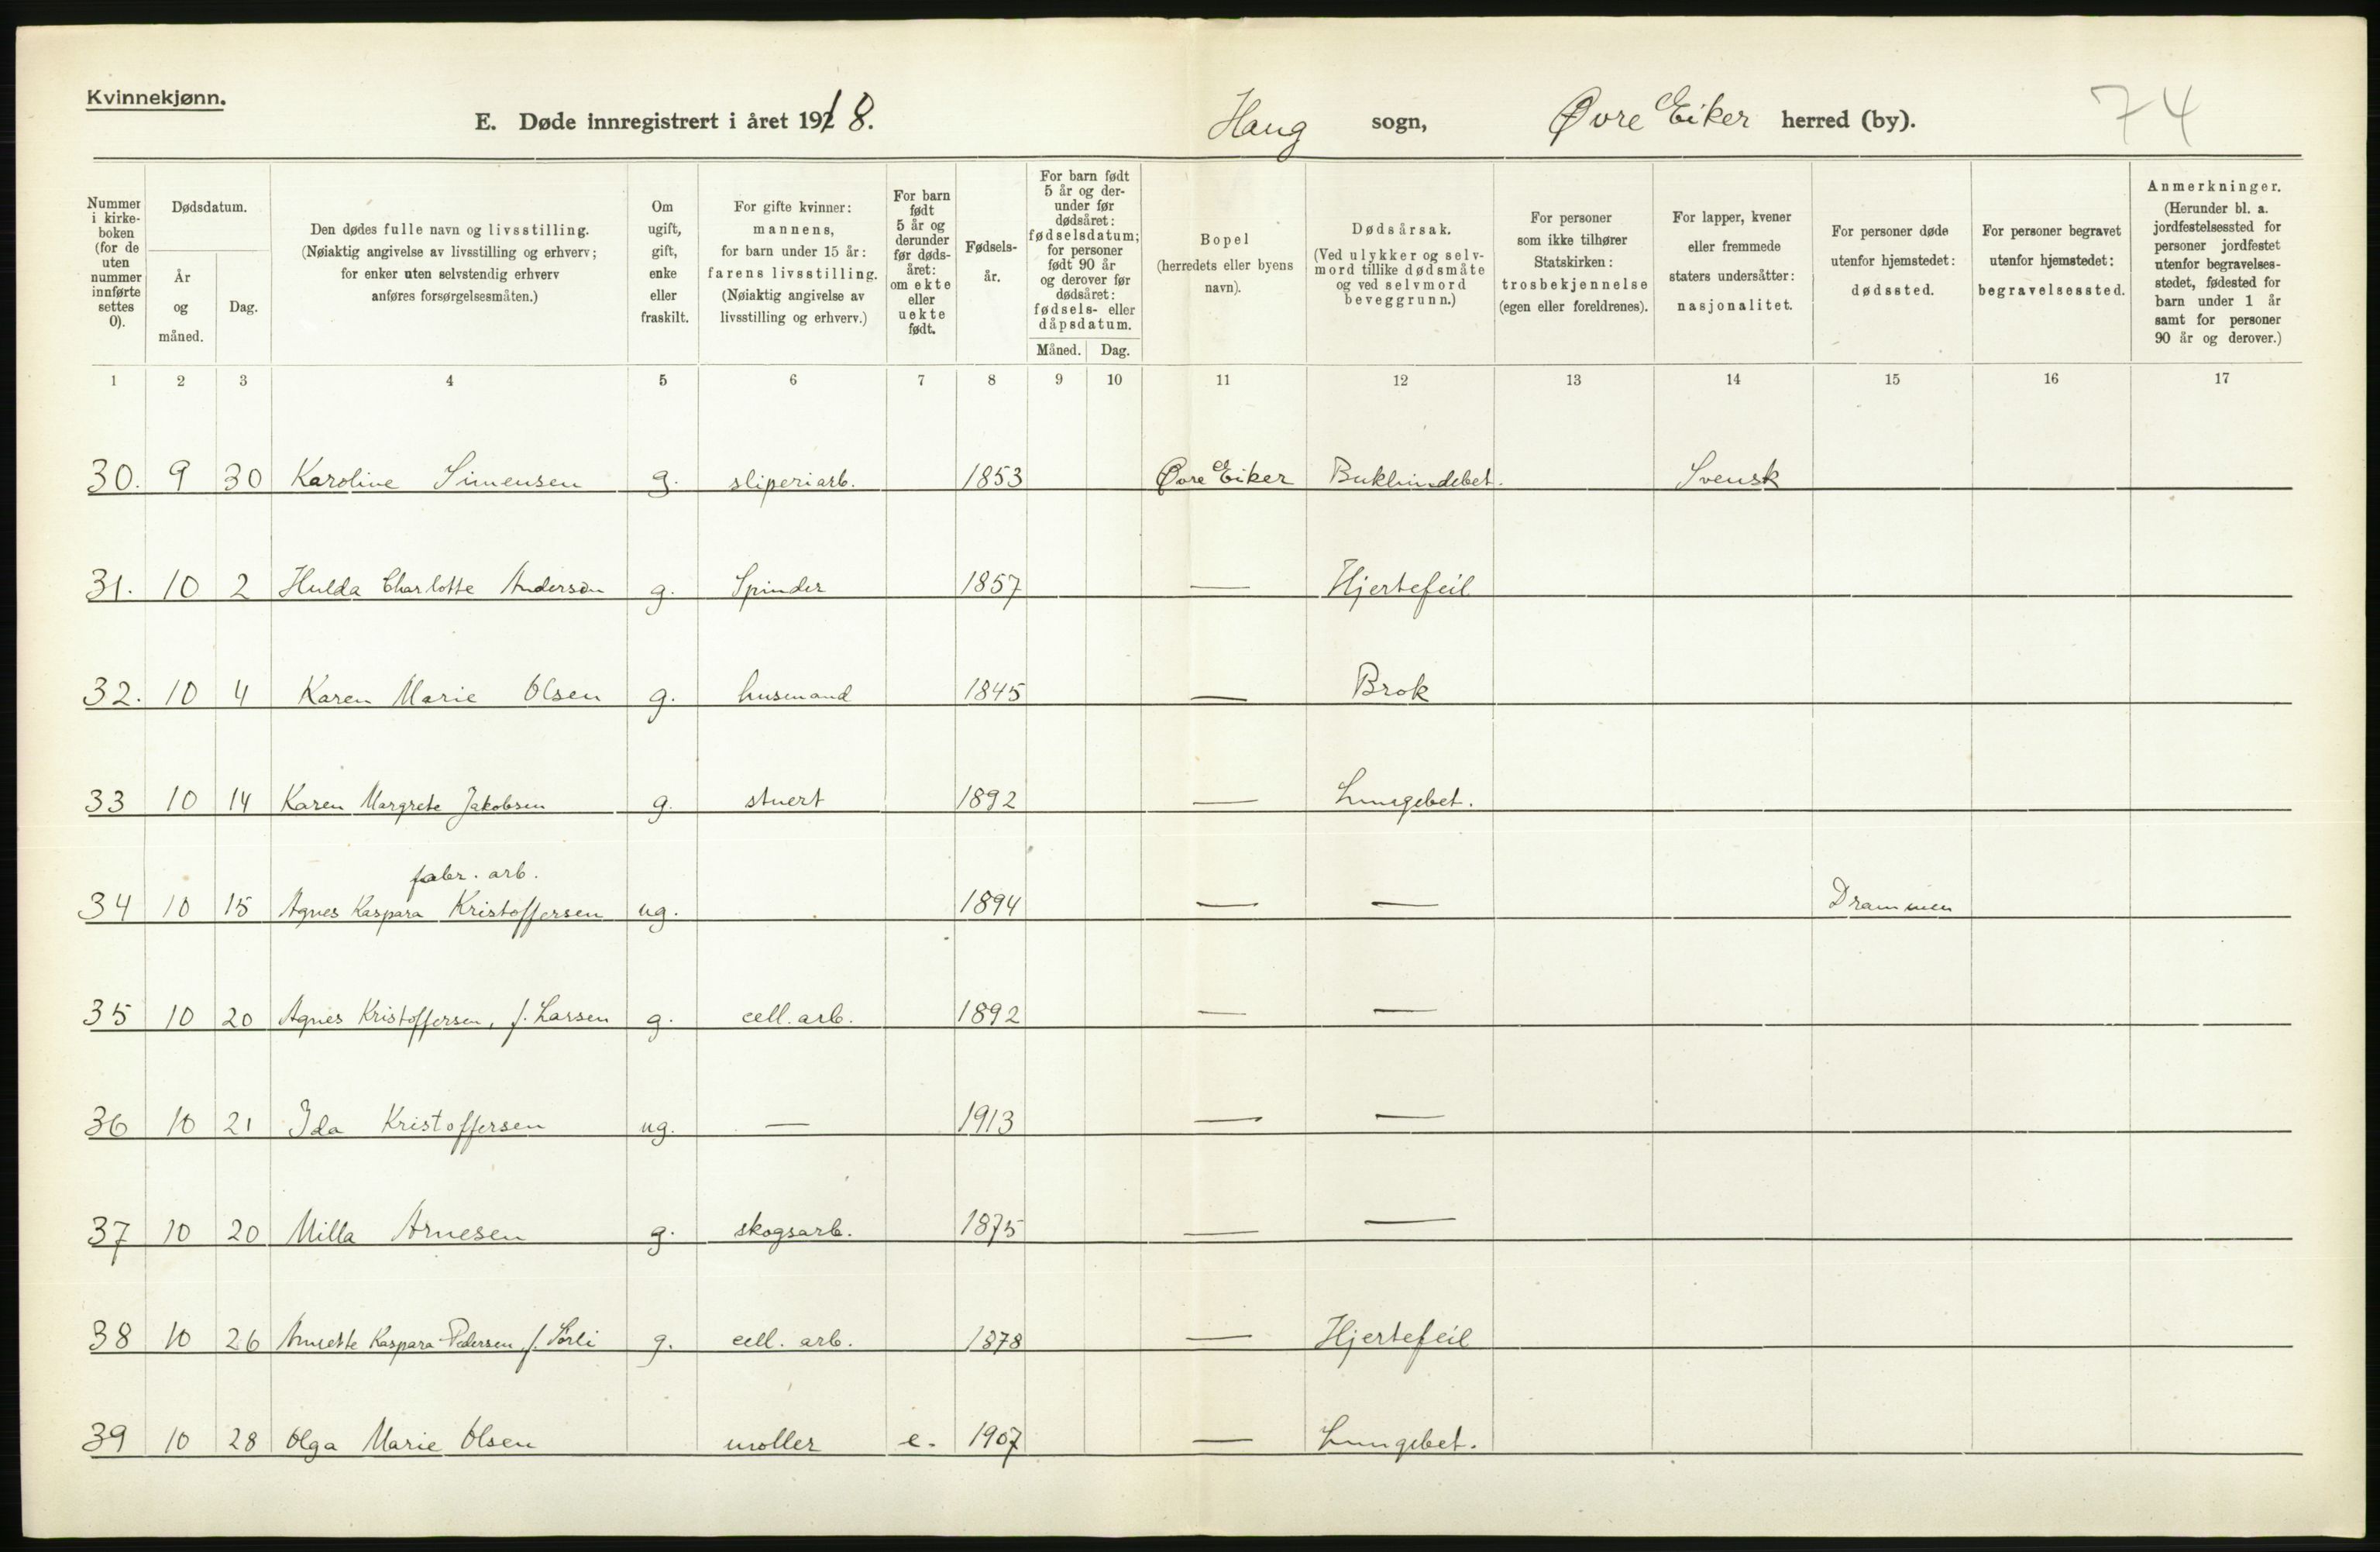 Kvinnekjønn.
E. Døde innregistrert i året 1918. Haug sogn, Øvre Eiker herred (by). 74
Nummer i kirkeboken (for de uten nummer innførte settes 0).
Dødsdatum.
År og måned.
Dag.
Den dødes fulle navn og livsstilling. (Nøiaktig angivelse av livsstilling og erhverv; for enker uten selvstendig erhverv anføres forsørgelsesmåten.)
Om ugift, gift, enke eller fraskilt.
For gifte kvinner: mannens, for barn under 15 år: farens livsstilling. (Nøiaktig angivelse av livsstilling og erhverv.)
For barn født 5 år og derunder før dødsåret: om ekte eller uekte født.
Fødselsår.
For barn født 5 år og derunder før dødsåret: fødselsdatum; for personer født 90 år og derover før dødsåret: fødsels- eller dåpsdatum.
Måned. Dag.
Bopel (herredets eller byens navn).
Dødsårsak. (Ved ulykker og selvmord tillike dødsmåte og ved selvmord beveggrunn.)
For personer som ikke tilhører Statskirken: trosbekjennelse (egen eller foreldrenes).
For lapper, kvener eller fremmede staters undersåtter: nasjonalitet.
For personer døde utenfor hjemstedet: dødssted.
For personer begravet utenfor hjemstedet: begravelsessted.
Anmerkninger. (Herunder bl. a. jordfestelsessted for personer jordfestet utenfor begravelsesstedet, fødested for barn under 1 år samt for personer 90 år og derover.)
1 2 3 4 5 6 7 8 9 10 11 12 13 14 15 16 17
30. 9 30 Karoline Simensen g. sliperiarb. 1853 Øvre Eiker Bukhindebet. Svensk
31. 10 2 Hulda Charlotte Anderson g. Spinder 1857 — Hjertefeil
32. 10 4 Karen Marie Olsen g. husmand 1845 — Brok
33 10 14 Karen Margrete Jakobsen g. stuert 1892 — Lungebet.
fabr. arb.
34 10 15 Agnes Kaspara Kristoffersen ug. 1894 — — Drammen
35 10 20 Agnes Kristoffersen, f. Larsen g. cell. arb. 1892 — —
36 10 21 Ida Kristoffersen ug. — 1913 — —
37 10 20 Milla Arnesen g. skogsarb. 1875 — —
38 10 26 Kaspara Pedersen, f. Sørli g. cell. arb. 1878 — Hjertefeil
39 10 28 Olga Marie Olsen møller e. 1907 — Lungebet.